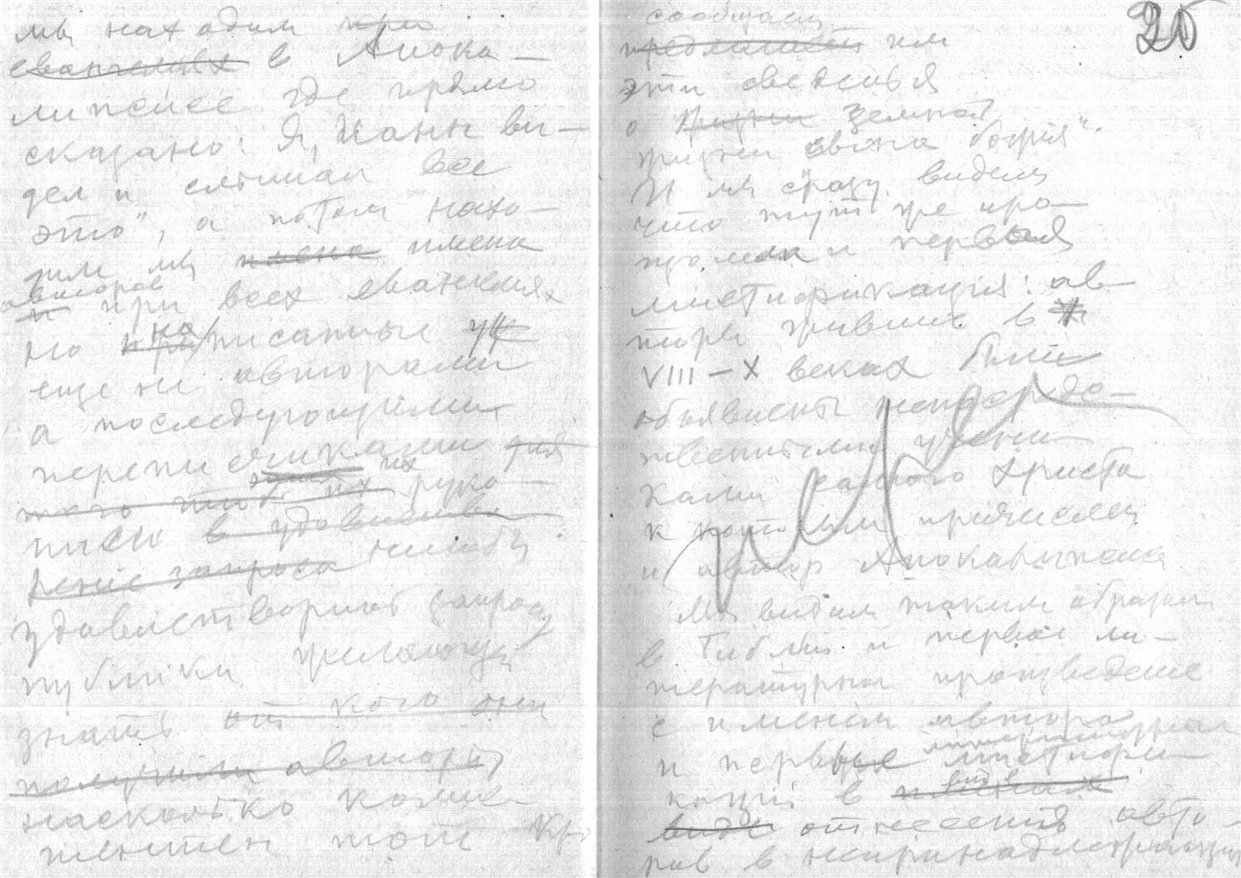 мы находим при
евангелиях в Апока-
липсисе где прямо
сказано: Я, Иоанн ви-
дел и слышал все
это", а потом нахо-
дим мы имена имена
авторов
и при всех евангелиях
но на писанные уж
еще не авторами
а последующими
переписчиками для
того чтоб их руко-
писи в удовлетво-
рение запроса
удовлетворить запросу
публики желающей
знать от кого они
получили авторы
насколько компе-
тентен тот кто
20
сообщает
им
эти сведенья
о жизни земной
жизни сына божия".
И мы сразу видим
что тут же про-
изошла и первая
мистификация: ав-
торы жившие в
VIII – X веках были
объявлены непосредс-
твенными учени-
ками самого Христа
к которым причислен
и автор Апокалипсиса
Мы видим таким образом
в Библии и первое ли-
тературное произведение
с именем автора
литературные
и первые мистифи-
виде
кации в
виде отнесения авто-
ров в непринадлежащую